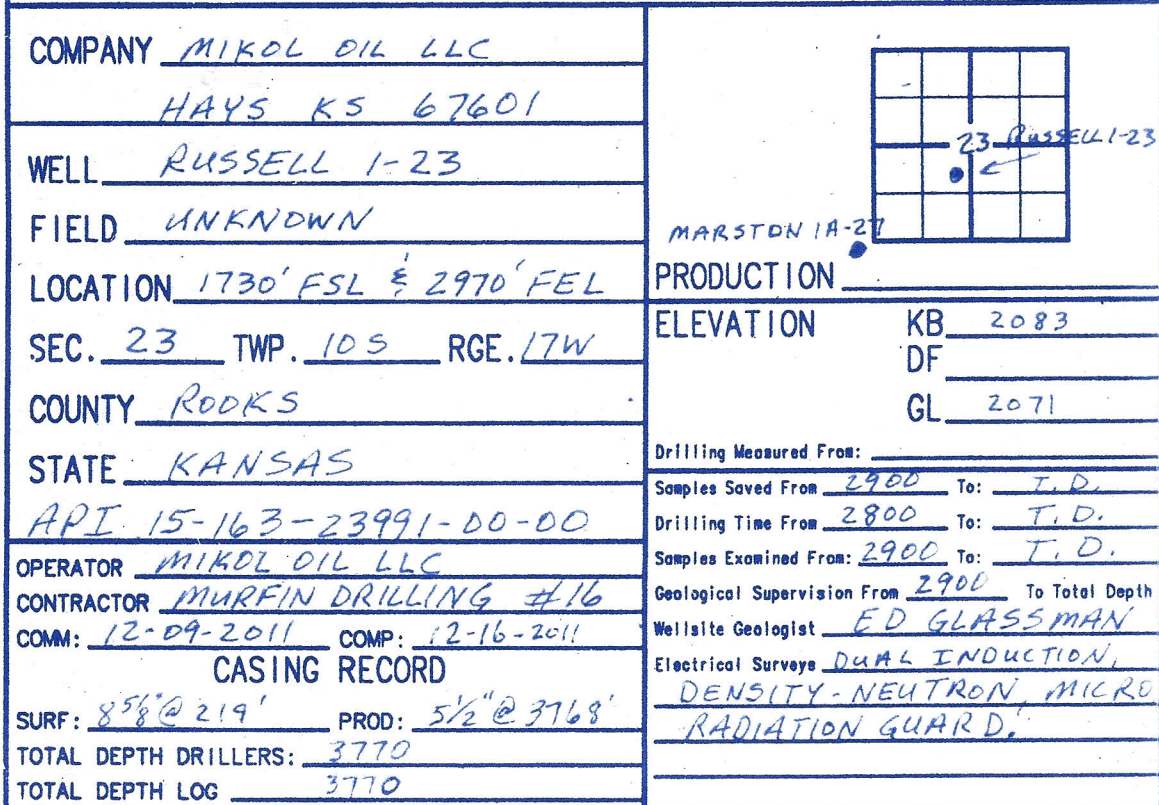 COMPANY MIKOL OIL LLC
HAYS KS 67601
WELL RUSSELL 1-23
FIELD UNKNOWN
LOCATION 1730' FSL & 2970' FEL
SEC. 23 TWP. 10S RGE. 17W
COUNTY ROOKS
STATE KANSAS
API 15-163-23991-00-00
OPERATOR MIKOL OIL LLC
CONTRACTOR MURFIN DRILLING #16
COMM: 12-09-2011 COMP: 12-16-2011
CASING RECORD
SURF: 8 5/8" @ 219' PROD: 5 1/2" @ 3768'
TOTAL DEPTH DRILLERS: 3770
TOTAL DEPTH LOG 3770
23 RUSSELL 1-23
MARSTON 1A-27
PRODUCTION
ELEVATION KB 2083
DF
GL 2071
Drilling Measured From:
Samples Saved From 2900 To: T.D.
Drilling Time From 2800 To: T.D.
Samples Examined From: 2900 To: T.D.
Geological Supervision From 2900 To Total Depth
Wellsite Geologist ED GLASSMAN
Electrical Surveys DUAL INDUCTION,
DENSITY-NEUTRON, MICRO
RADIATION GUARD.